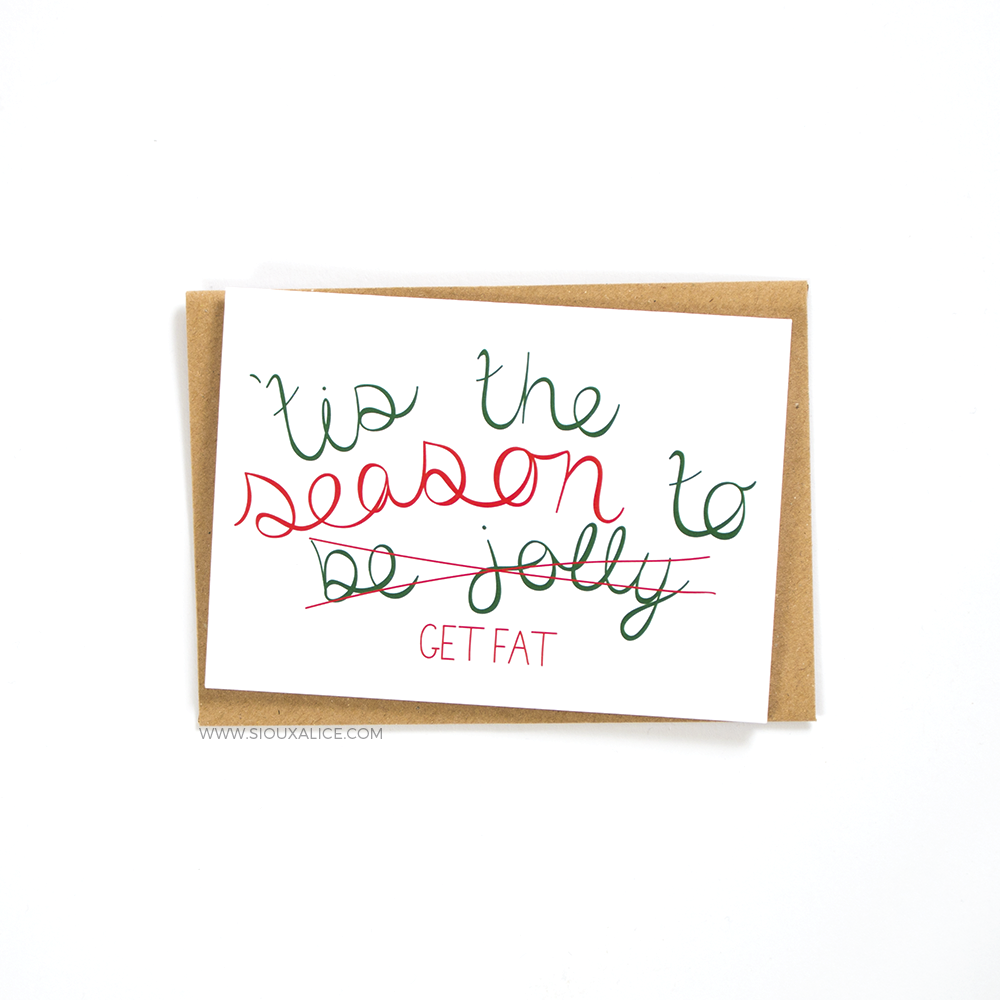 'tis the
season to
be jolly
GET FAT
WWW.SIOUXALICE.COM